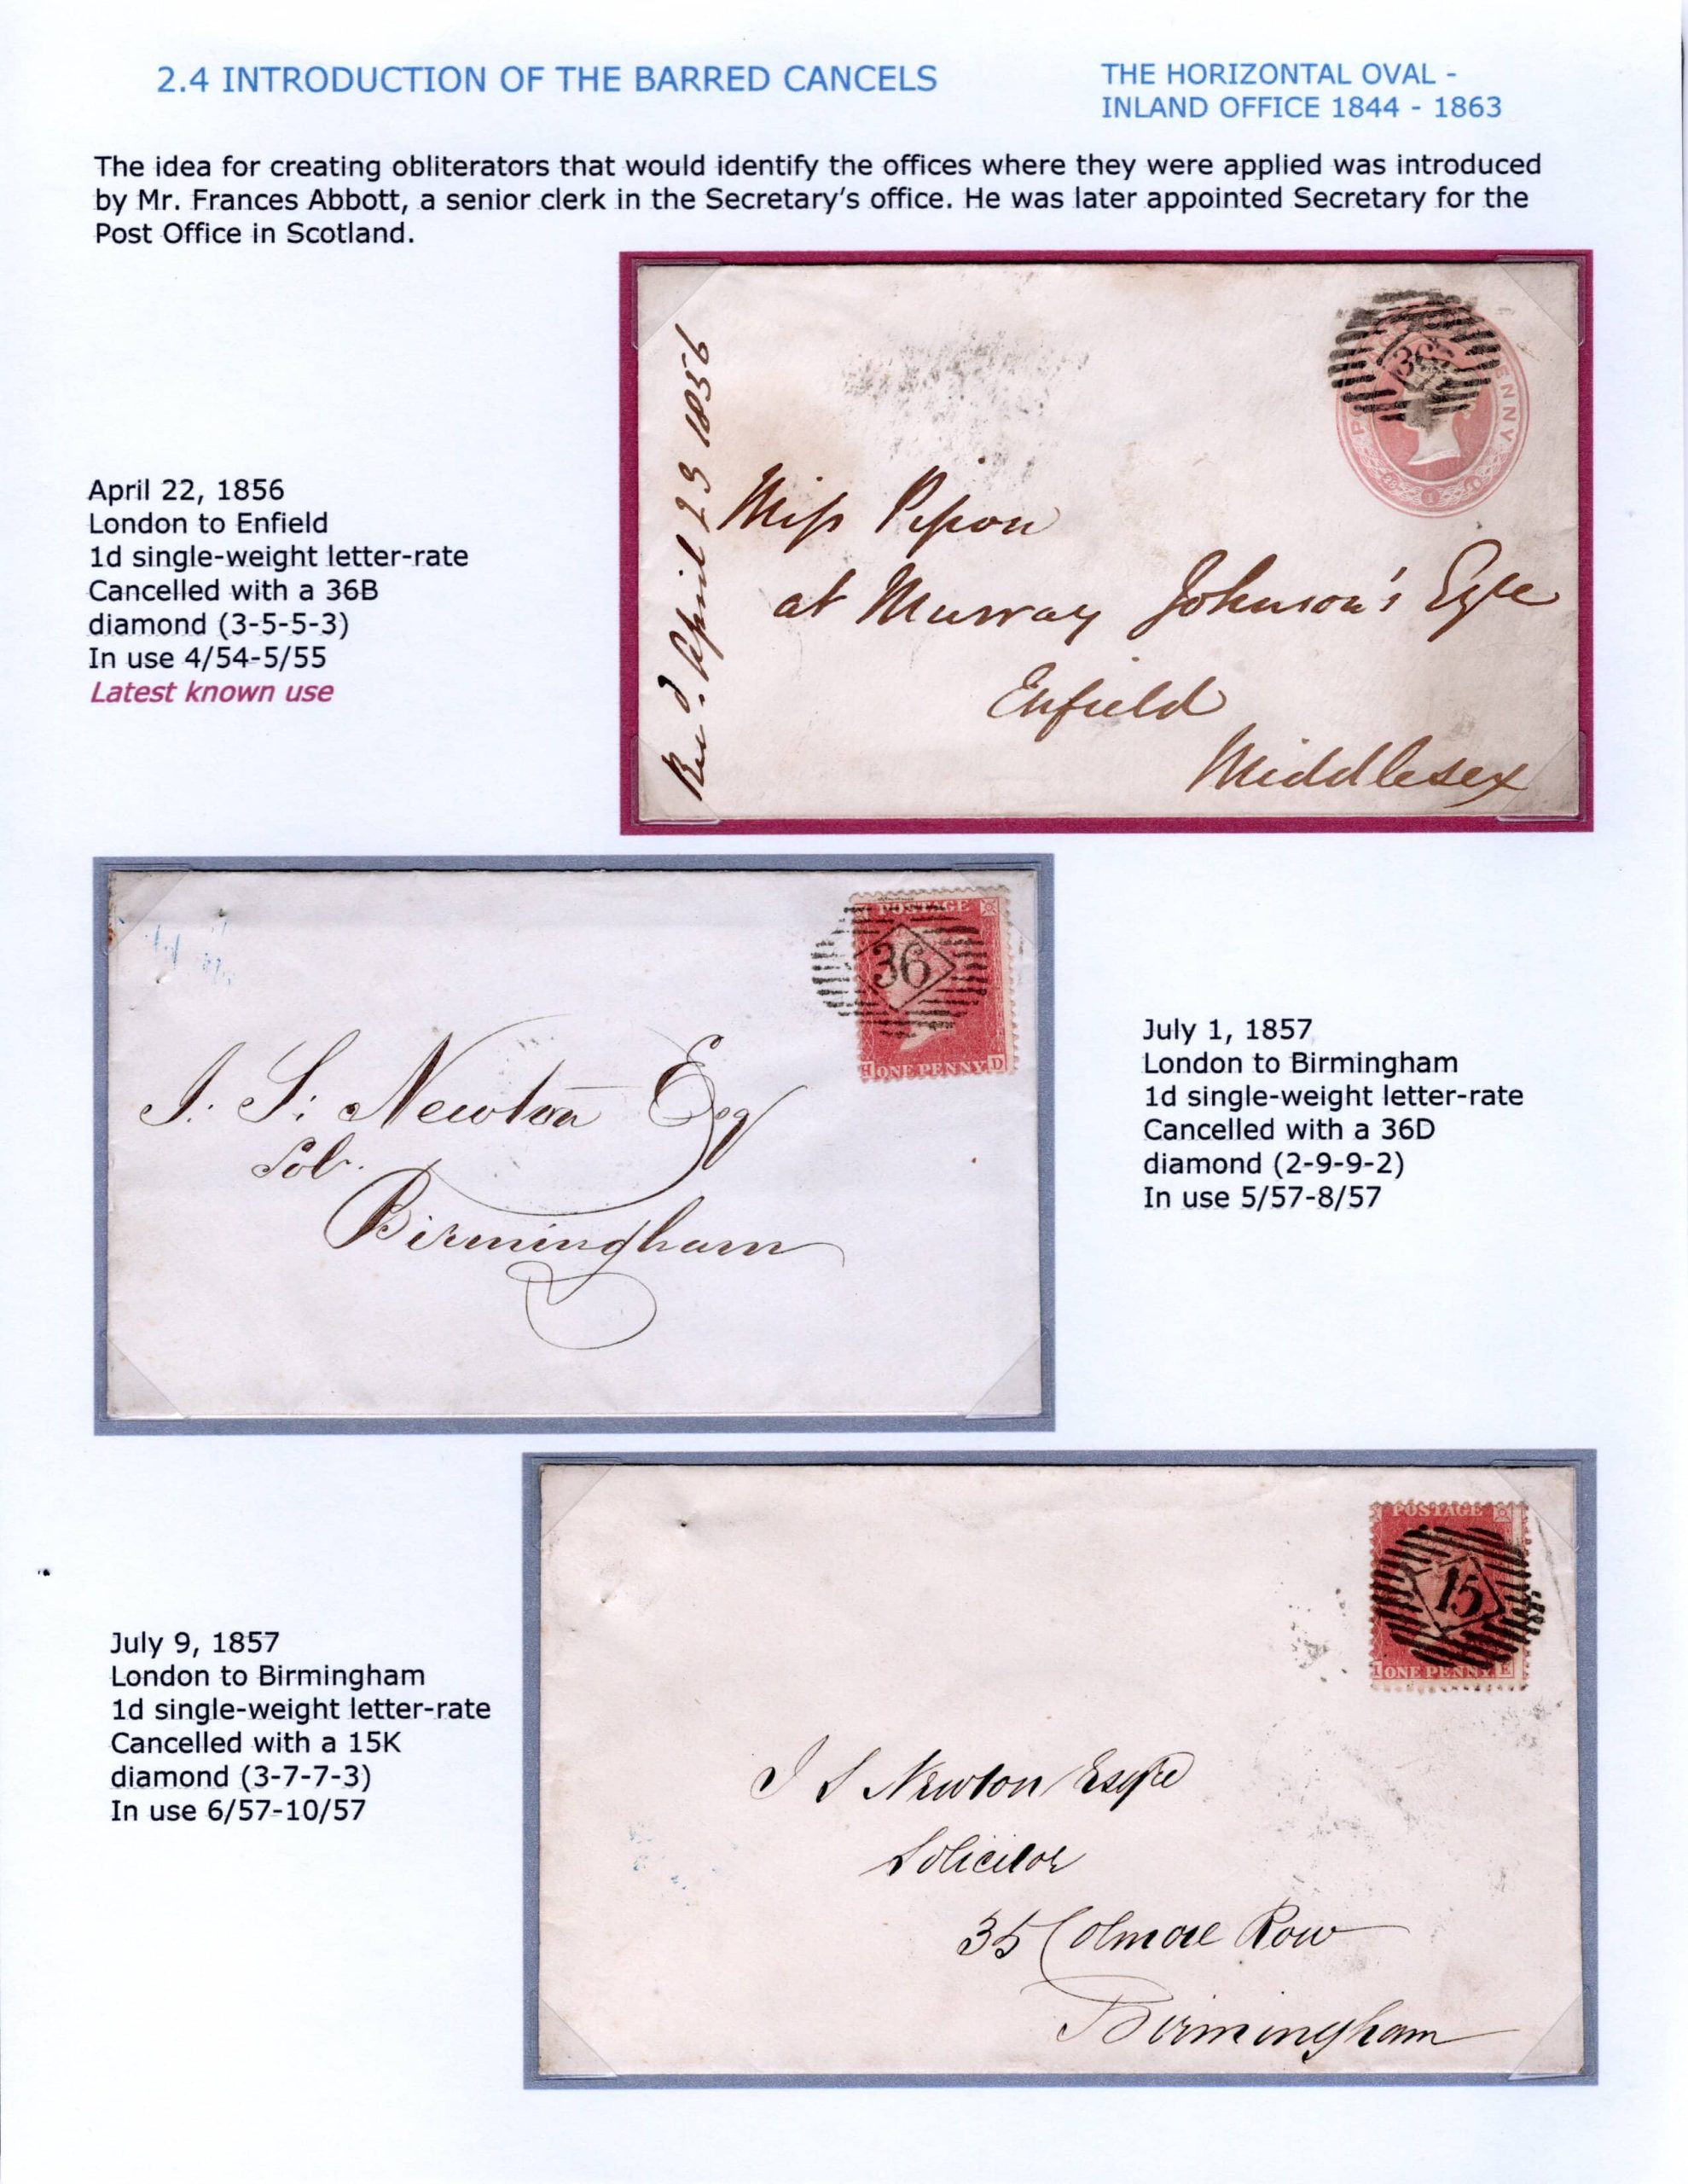 2.4 INTRODUCTION OF THE BARRED CANCELS
THE HORIZONTAL OVAL -
INLAND OFFICE 1844 - 1863
The idea for creating obliterators that would identify the offices where they were applied was introduced
by Mr. Frances Abbott, a senior clerk in the Secretary's office. He was later appointed Secretary for the
Post Office in Scotland.
April 22, 1856
London to Enfield
1d single-weight letter-rate
Cancelled with a 36B
diamond (3-5-5-3)
In use 4/54-5/55
Latest known use
Recd. April 23 1856
36
Miss Pipon
at Murray Johnson's Eqre
Enfield
Middlesex
POSTAGE
36
H ONE PENNY D
J. S. Newton Esq
Sol.
Birmingham
July 1, 1857
London to Birmingham
1d single-weight letter-rate
Cancelled with a 36D
diamond (2-9-9-2)
In use 5/57-8/57
July 9, 1857
London to Birmingham
1d single-weight letter-rate
Cancelled with a 15K
diamond (3-7-7-3)
In use 6/57-10/57
POSTAGE
15
I ONE PENNY E
J S Newton Esqre
Solicitor
35 Colmore Row
Birmingham